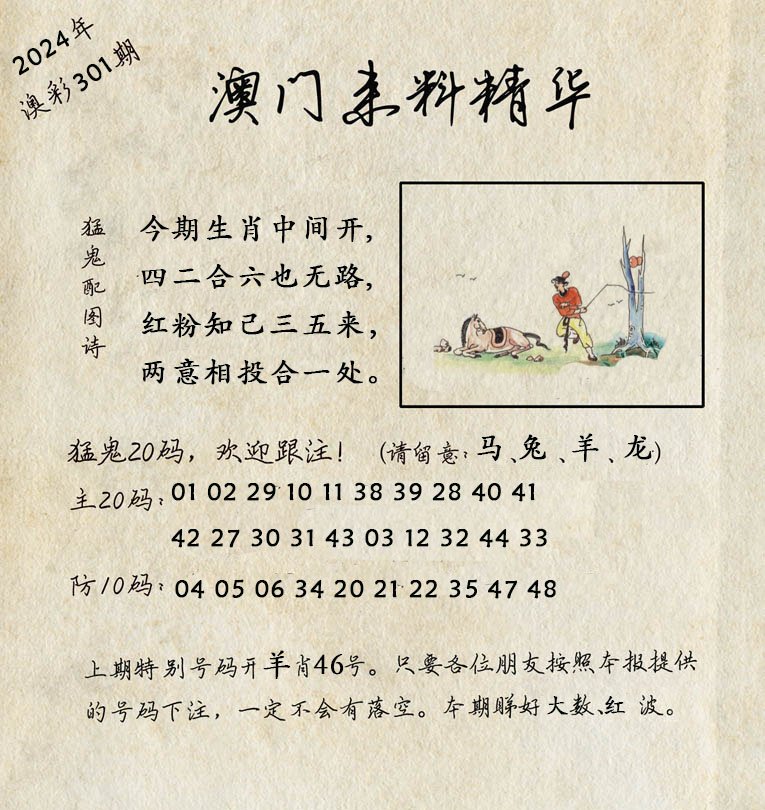 2024年
澳彩301期
澳门来料精华
猛鬼配图诗
今期生肖中间开,
四二合六也无路,
红粉知己三五来，
两意相投合一处。
猛鬼20码，欢迎跟注！（请留意：马、兔、羊、龙）
主20码：01 02 29 10 11 38 39 28 40 41
42 27 30 31 43 03 12 32 44 33
防10码：04 05 06 34 20 21 22 35 47 48
上期特别号码开羊肖46号。只要各位朋友按照本报提供
的号码下注，一定不会有落空。本期睇好大数、红 波。